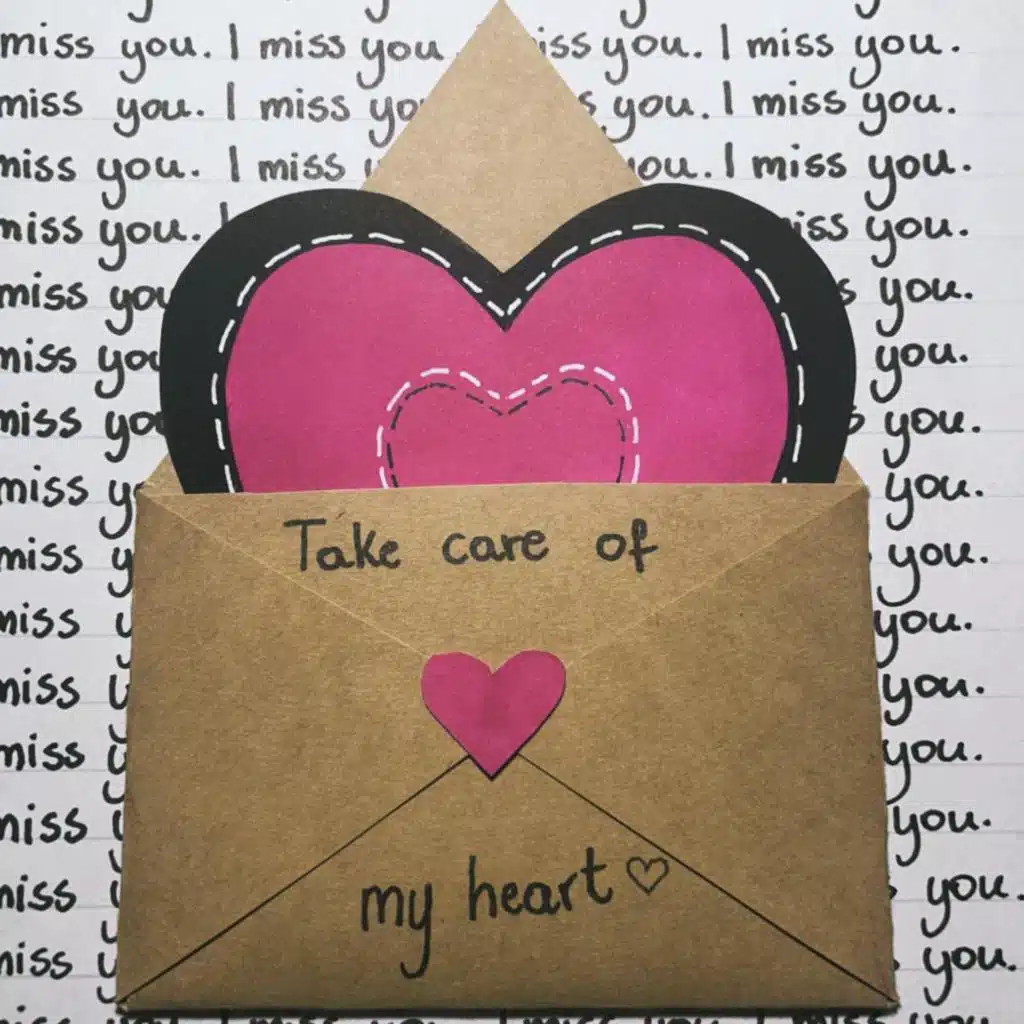 miss you. I miss you iss you. I miss you.
miss you. I miss yo s you. I miss you.
miss you. I miss ou. I miss you.
miss you. I iss you.
miss you s you.
miss you you.
miss yo you.
miss y you.
miss y you.
miss you.
miss you.
miss you.
miss you.
miss you.
miss you.
Take care of
my heart ♡